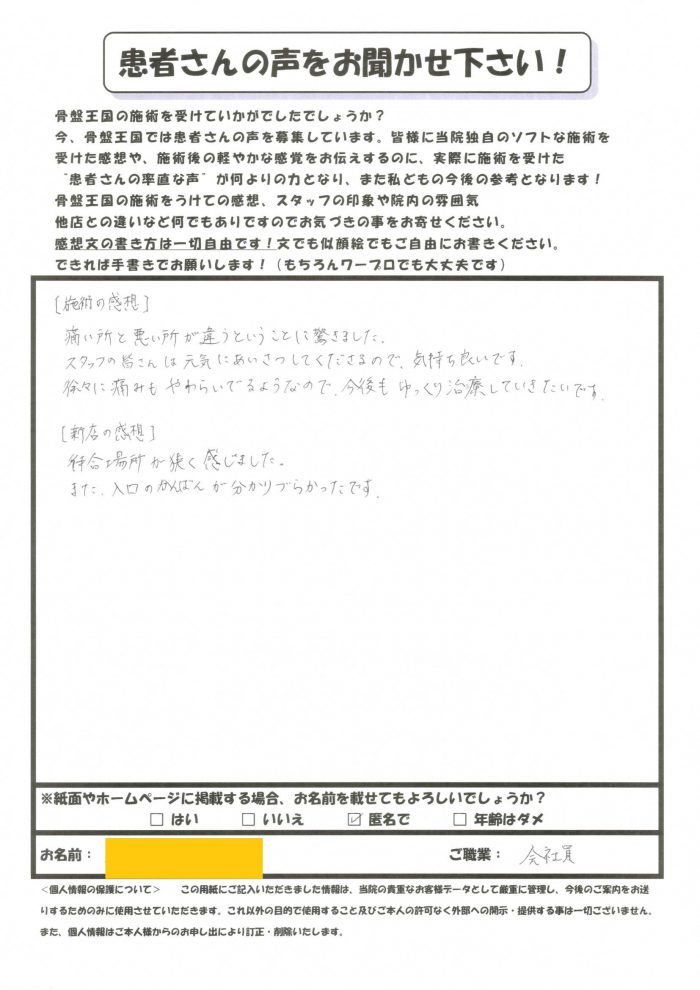 患者さんの声をお聞かせ下さい！
骨盤王国の施術を受けていかがでしたでしょうか？
今、骨盤王国では患者さんの声を募集しています。皆様に当院独自のソフトな施術を
受けた感想や、施術後の軽やかな感覚をお伝えするのに、実際に施術を受けた
“患者さんの率直な声”が何よりの力となり、また私どもの今後の参考となります！
骨盤王国の施術をうけての感想、スタッフの印象や院内の雰囲気
他店との違いなど何でもありですのでお気づきの事をお寄せください。
感想文の書き方は一切自由です！文でも似顔絵でもご自由にお書きください。
できれば手書きでお願いします！（もちろんワープロでも大丈夫です）
[施術の感想]
痛い所と悪い所が違うということに驚きました。
スタッフの皆さんは元気にあいさつしてくださるので、気持ち良いです。
徐々に痛みもやわらいでるようなので、今後もゆっくり治療していきたいです。
[新店の感想]
待合場所が狭く感じました。
また、入口のかんばんが分かりづらかったです。
※紙面やホームページに掲載する場合、お名前を載せてもよろしいでしょうか？
□ はい □ いいえ ☑ 匿名で □ 年齢はダメ
お名前： ご職業： 会社員
＜個人情報の保護について＞ この用紙にご記入いただきました情報は、当院の貴重なお客様データとして厳重に管理し、今後のご案内をお送
りするためのみに使用させていただきます。これ以外の目的で使用すること及びご本人の許可なく外部への開示・提供する事は一切ございません。
また、個人情報はご本人様からのお申し出により訂正・削除いたします。